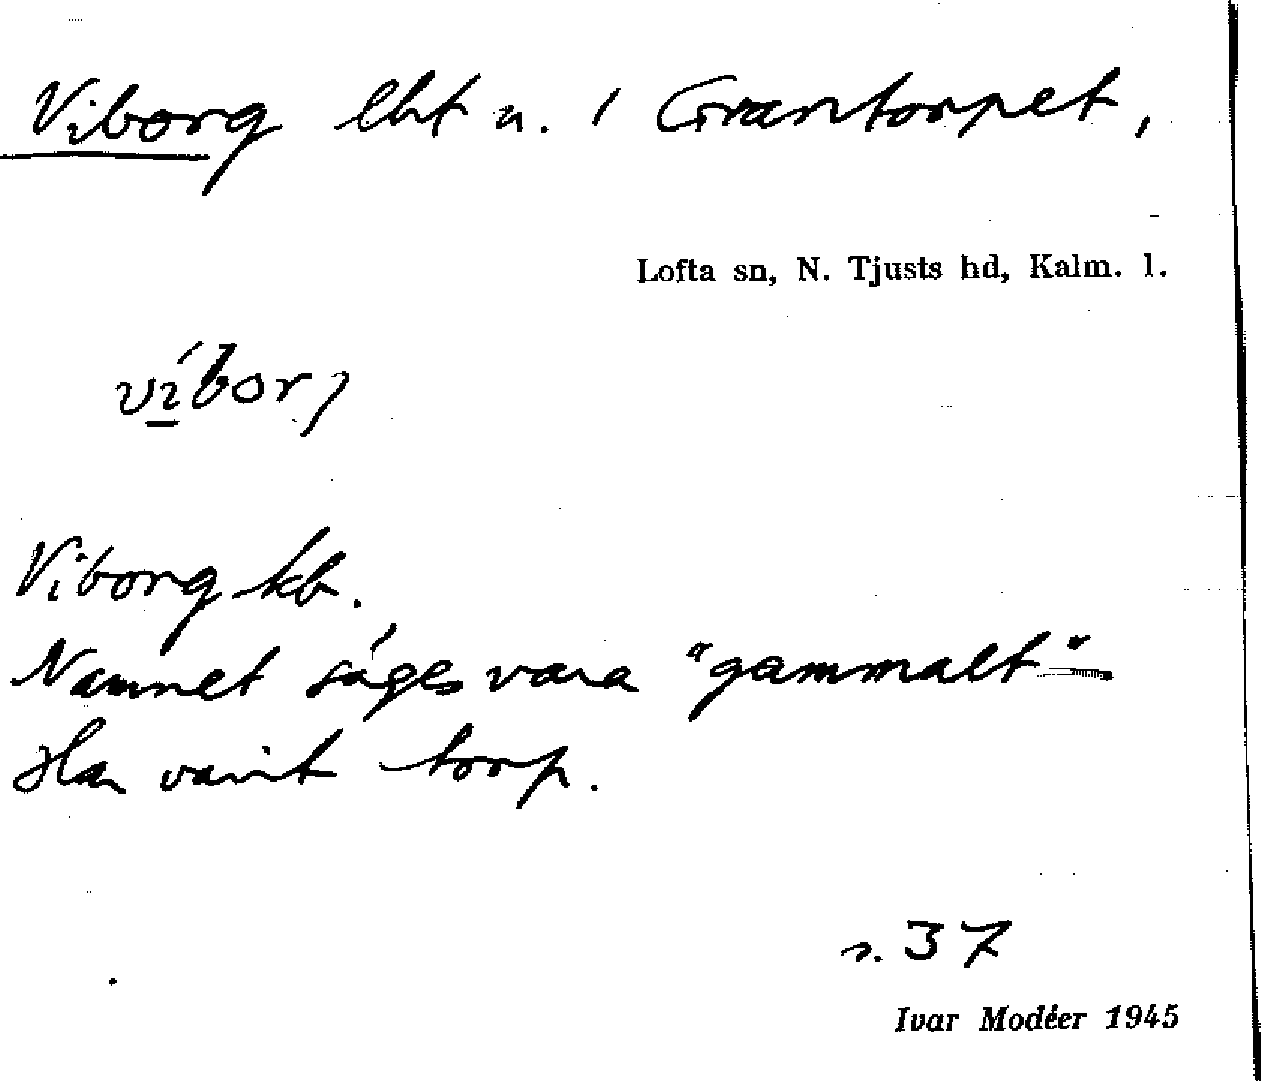 Viborg lht n. i Grantorpet,
Lofta sn, N. Tjusts hd, Kalm. l.
víborj
Viborg kb.
Namnet säges vara "gammalt"
Har varit torp.
s. 37
Ivar Modéer 1945